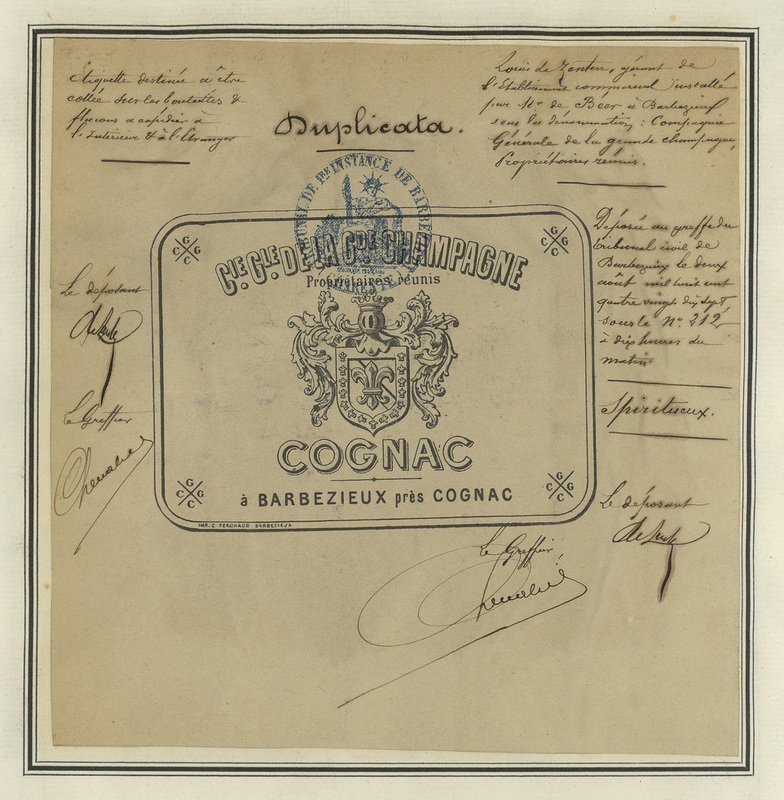 Etiquette destinée à être
collée sur les bouteilles &
flacons à expédier à
l'Intérieur & à l'Etranger
Duplicata.
Louis de Zenten, gérant de
l'Etablissement commercial installé
par Mr de Beer à Barbezieux
sous les dénominations : Compagnie
Générale de la grande champagne,
Propriétaires réunis.
TRIBUNAL DE 1ère INSTANCE DE BARBEZIEUX
CIE GLE DE LA GDE CHAMPAGNE
Propriétaires réunis
G
C G
C
G
C G
C
COGNAC
à BARBEZIEUX près COGNAC
G
C G
C
G
C G
C
IMP. C. BARBEZIEUX
Le déposant
Le Greffier
Chevalier
Déposée au greffe du
tribunal civil de
Barbezieux le deux
août mil huit cent
quatre vingt dix sept
sous le No 212
à dix heures du
matin
Spiritueux.
Le déposant
Le Greffier
Chevalier